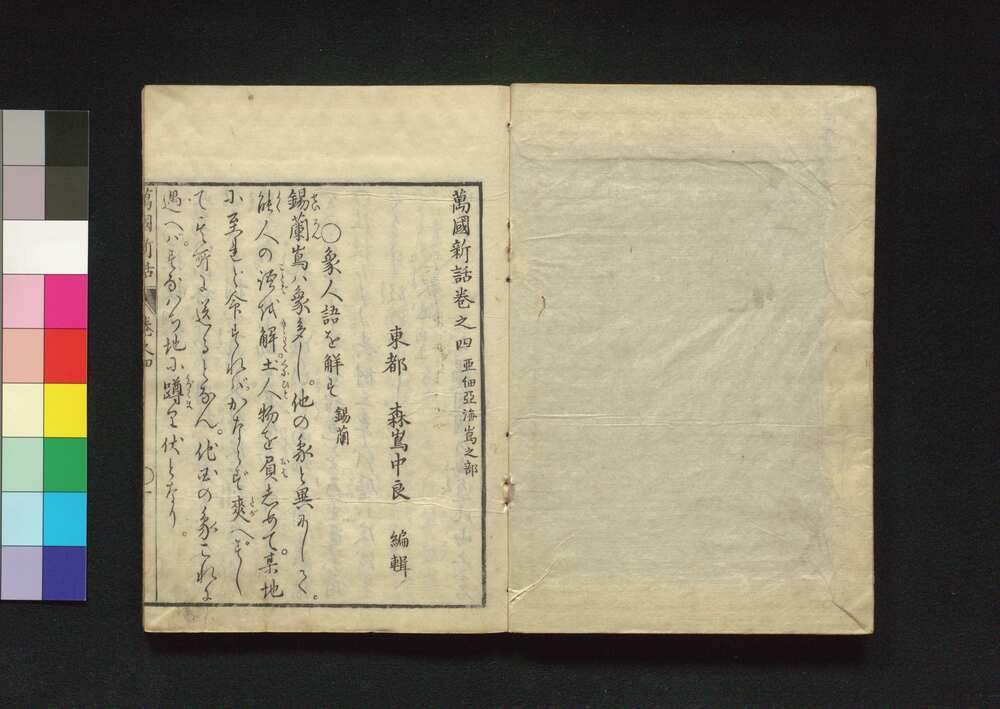 萬國新話卷之四 亜細亞海嶌之部
東都 森嶌中良 編輯
○象人語を解す 錫蘭
錫蘭嶌ハ象多し。他の象と異にして。
能人の語を解。土人物を負しめて。某地
に至れと命ずれバ。かならず爽へずし
て其所に送るとなん。他国の象これに
遇へバ。すなハち地に蹲り伏となり。
萬國新話 卷之四 ○一